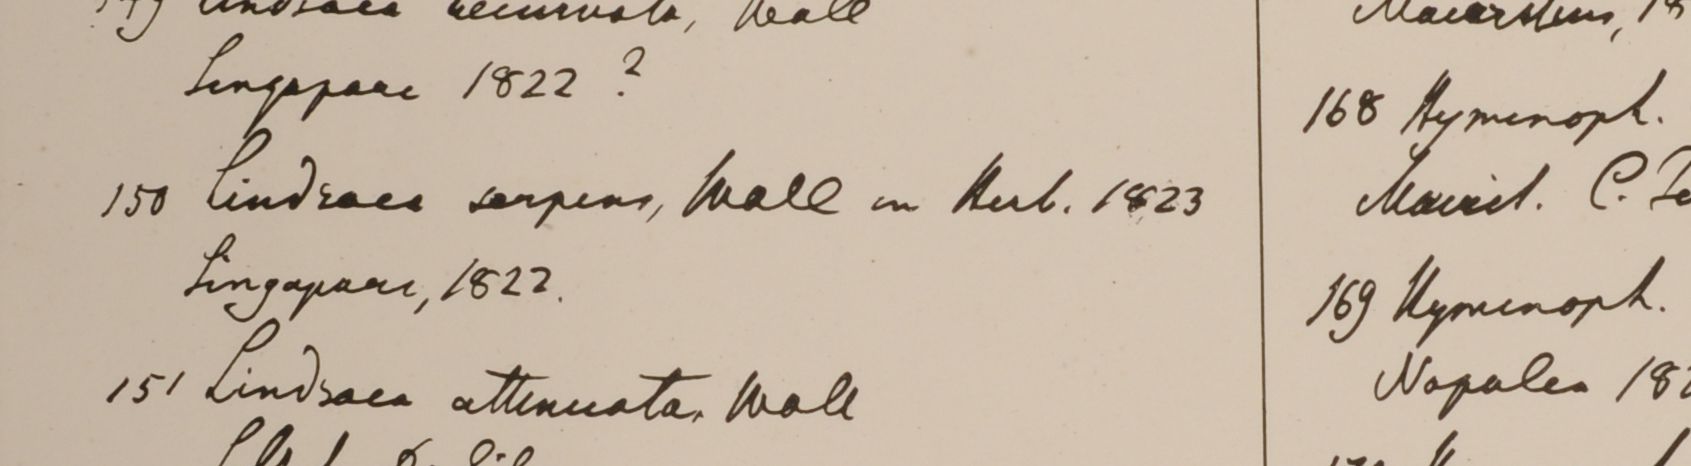 149 Lindsaea recurvata, Wall
Singapore 1822 ?
150 Lindsaea serpens, Wall in Herb. 1823
Singapore, 1822.
151 Lindsaea attenuata, Wall
168 Hymenoph.
Maurit. C.
169 Hymenoph.
Napalea 182